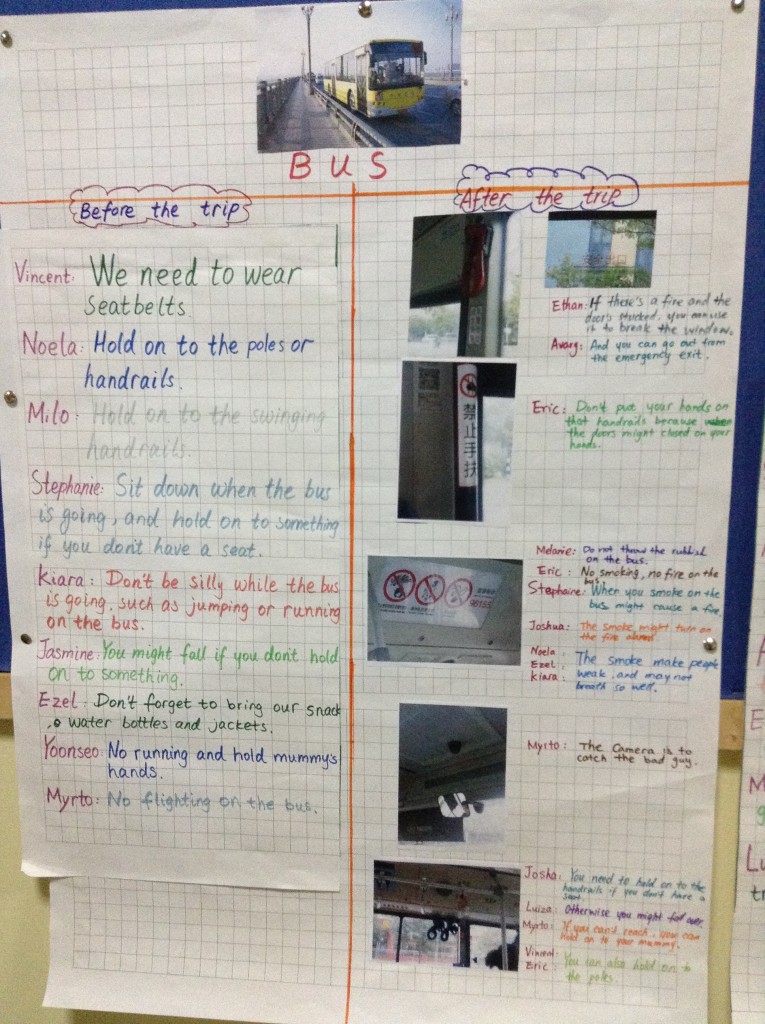 BUS
Before the trip
Vincent: We need to wear
seatbelts.
Noela: Hold on to the poles or
handrails.
Milo: Hold on to the swinging
handrails.
Stephanie: Sit down when the bus
is going, and hold on to something
if you don't have a seat.
Kiara: Don't be silly while the bus
is going, such as jumping or running
on the bus.
Jasmine: You might fall if you don't hold
on to something.
Ezel: Don't forget to bring our snack
, water bottles and jackets.
Yoonseo: No running and hold mummy's
hands.
Myrto: No flighting on the bus.
After the trip
Ethan: If there's a fire and the
door's stucked, you can use
it to break the window.
Avary: And you can go out from
the emergency exit.
禁止手扶
Eric: Don't put your hands on
that handrails because when
the doors might closed on your
hands.
96155
Melanie: Do not throw the rubbish
on the bus.
Eric: No smoking, no fire on the
bus!
Stephanie: When you smoke on the
bus might cause a fire
Joshua: The smoke might turn on
the fire alarm
Noela
Ezel
Kiara: The smoke make people
weak, and may not
breath so well.
Myrto: The Camera is to
catch the bad guy.
Josha: You need to hold on to the
handrails if you don't have a
seat.
Luiza: Otherwise you might fall over.
Myrto: If you can't reach, you can
hold on to your mummy.
Vincent
Eric: You can also hold on to
the poles.